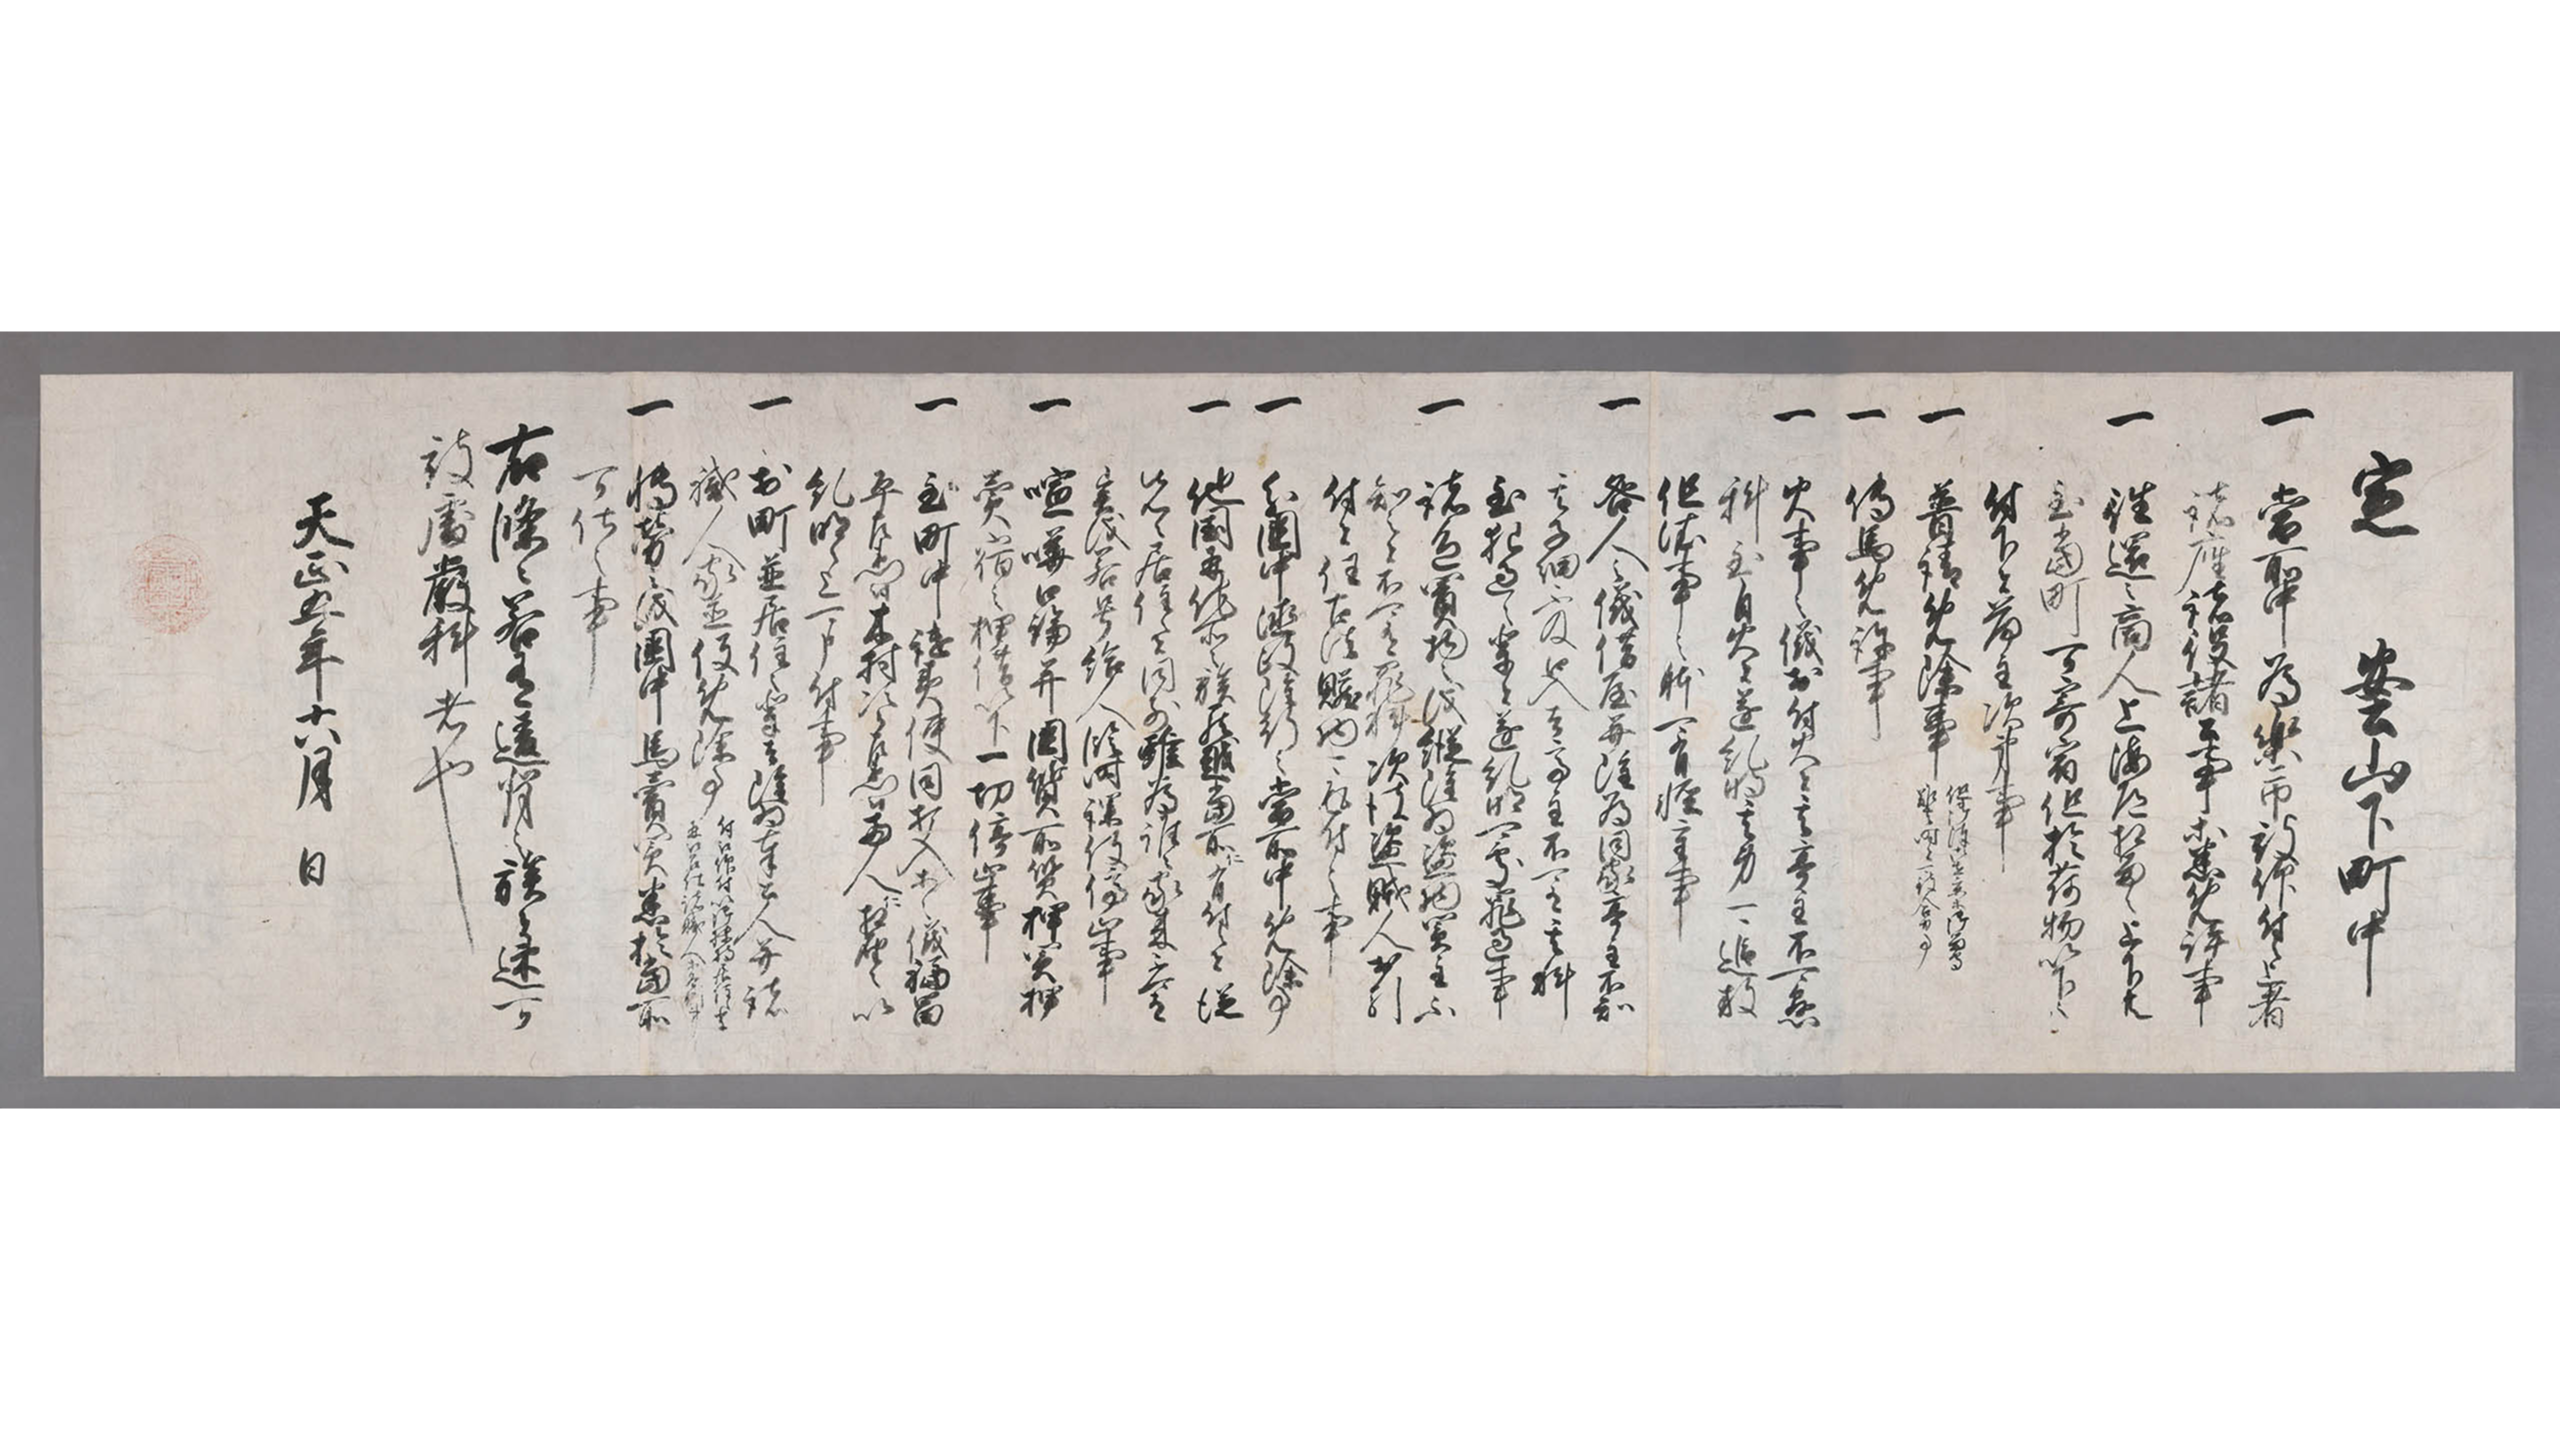 定　安土山下町中
一　当所中為楽市被仰付之上者
諸座諸役諸公事等悉免許事
一　往還之商人上海道相留之上下共
至当町可寄宿但於荷物以下之
付下者荷主次第事
一　普請免除事 但御陣御在京等御留守
難去時者可致合力事
一　伝馬免許事
一　火事之儀於付火者其亭主不可懸
科至自火者遂糺明其身可追放
但依事之躰可有軽重事
一　咎人之儀借屋并雖為同家亭主不知
其子細不及口入者亭主不可有其科
至犯過之輩者遂糺明可処罪過事
一　諸色買物之儀縦雖為盗物買主不
知之者不可有罪科次彼盗賊人於引
付者任古法贓物可返付之事
一　分国中徳政雖行之当所中免除事
一　他国并他所之族罷越当所仁有付者従
先々居住之者同前雖為誰々家来不可有
異儀若号給人臨時課役停止事
一　喧嘩口論并国質所質押買押
売宿之押借以下一切停止事
一　至町中譴責使同打入等之儀福富
平左衛門尉木村次郎左衛門尉両人仁相届之以
糺明之上可申付事
一　於町並居住之輩者雖為奉公人并諸
職人家並役免除事 付被仰付以御扶持居住之者
并被召仕諸職人等各別事
一　博労之儀国中馬売買悉於当所
可仕之事
右条々若有違背之族者速可
被処厳科者也
天正五年六月　日